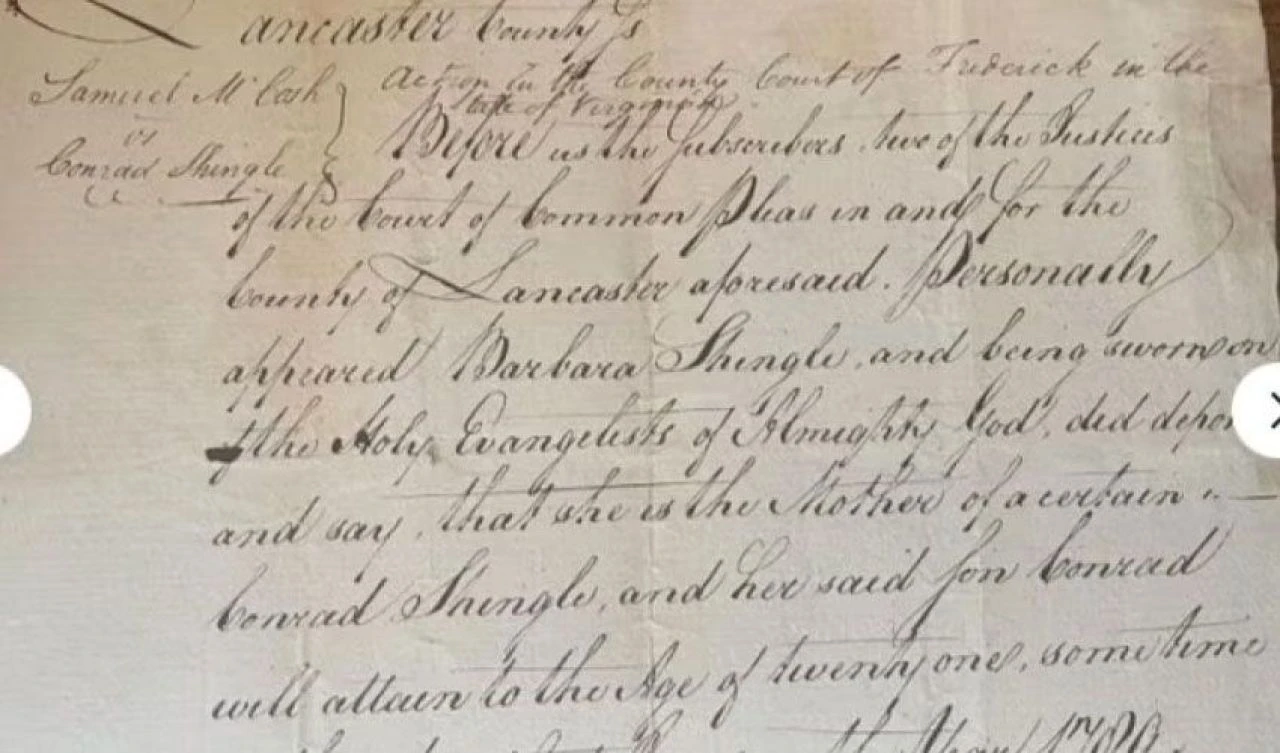 Lancaster County Ss
Samuel McCash
vs
Conrad Shingle
Action in the County Court of Frederick in the
State of Virginia
Before us the Subscribers two of the Justices
of the Court of Common Pleas in and for the
County of Lancaster aforesaid. Personally
appeared Barbara Shingle, and being sworn on
the Holy Evangelists of Almighty God, did depo
and say, that she is the Mother of a certain
Conrad Shingle, and her said Son Conrad
will attain to the Age of twenty one, some time
the Year 1789